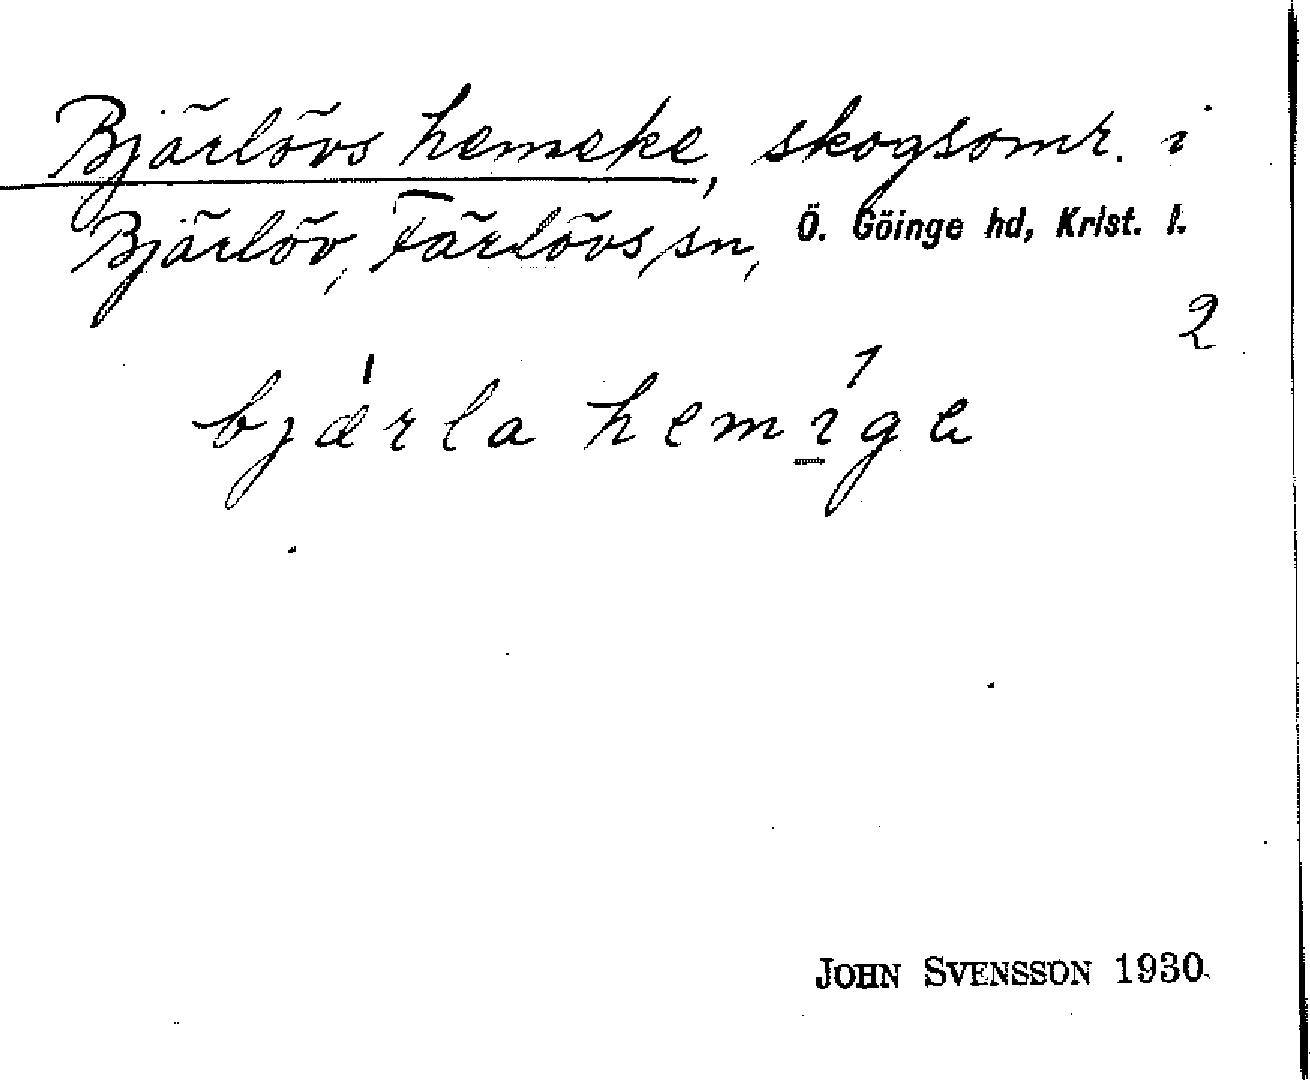 Bjärlövs hemeke, skogsomr. i
Bjärlöv, Färlövs sn, Ö. Göinge hd, Krist. l.
2
bjǽrla hemíge
JOHN SVENSSON 1930